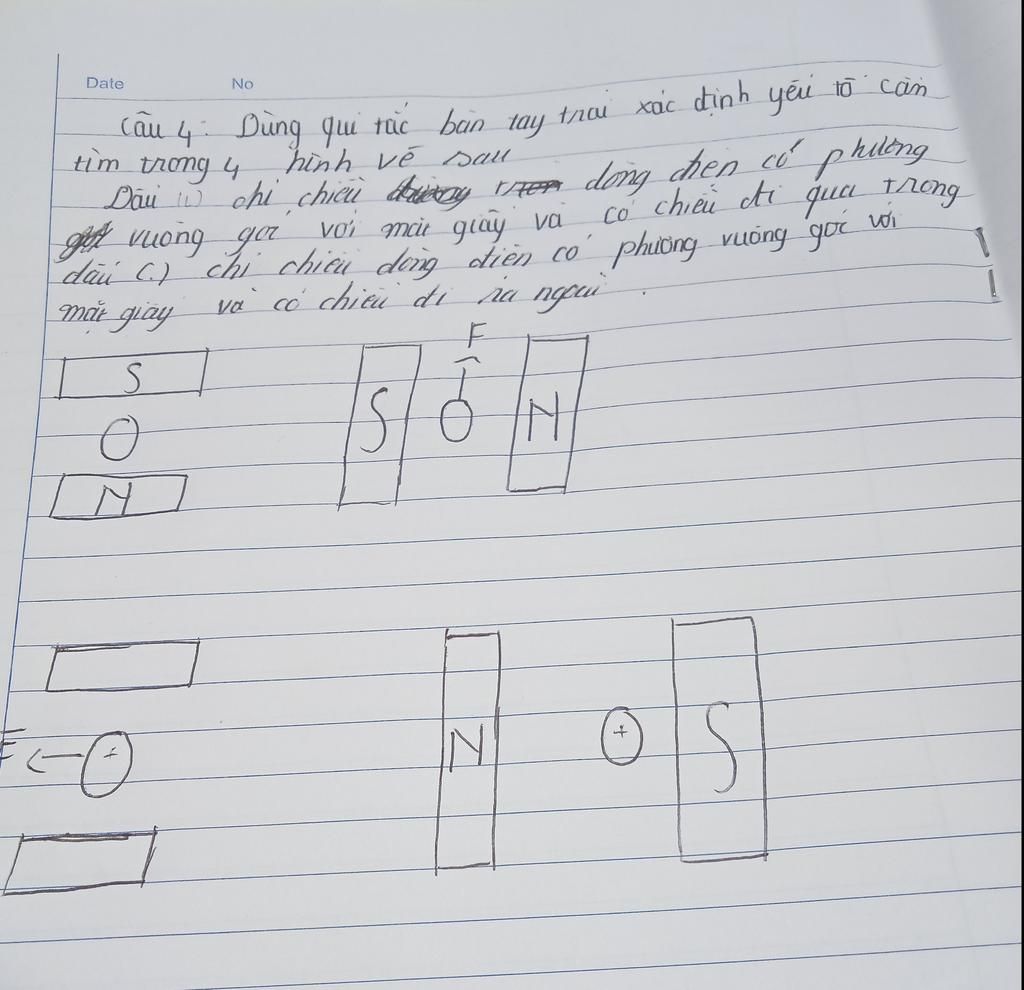 Date No
Câu 4: Dùng qui tắc bàn tay trái xác định yếu tố cần
tìm trong 4 hình vẽ sau
Dấu (+) chỉ chiều dòng điện có phương
vuông góc với mặt giấy và có chiều đi qua trong
dấu (.) chỉ chiều dòng điện có phương vuông góc với
mặt giấy và có chiều đi ra ngoài.
F
S
S N
N
N + S
F +